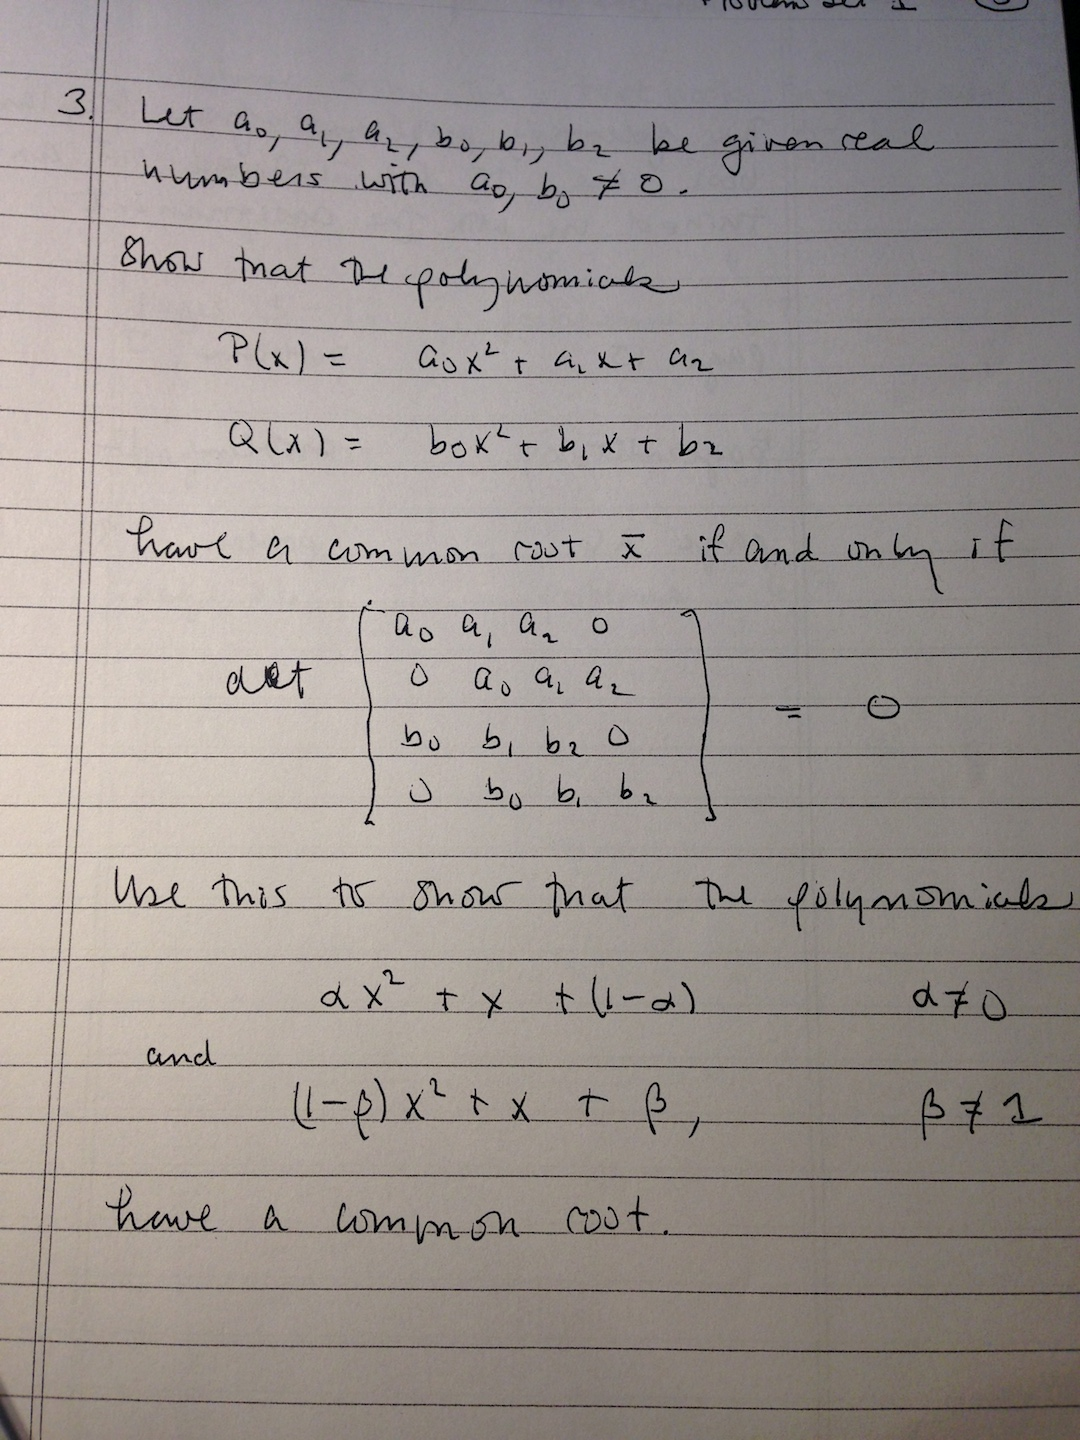 Problem Set 1
3. Let a₀, a₁, a₂, b₀, b₁, b₂ be given real
numbers with a₀, b₀ ≠ 0.
Show that the polynomials
P(x) = a₀x² + a₁x + a₂
Q(x) = b₀x² + b₁x + b₂
have a common root x̄ if and only if
det [ a₀ a₁ a₂ 0
0 a₀ a₁ a₂
b₀ b₁ b₂ 0
0 b₀ b₁ b₂ ] = 0
Use this to show that the polynomials
αx² + x + (1-α) α≠0
and
(1-β)x² + x + β, β≠1
have a common root.